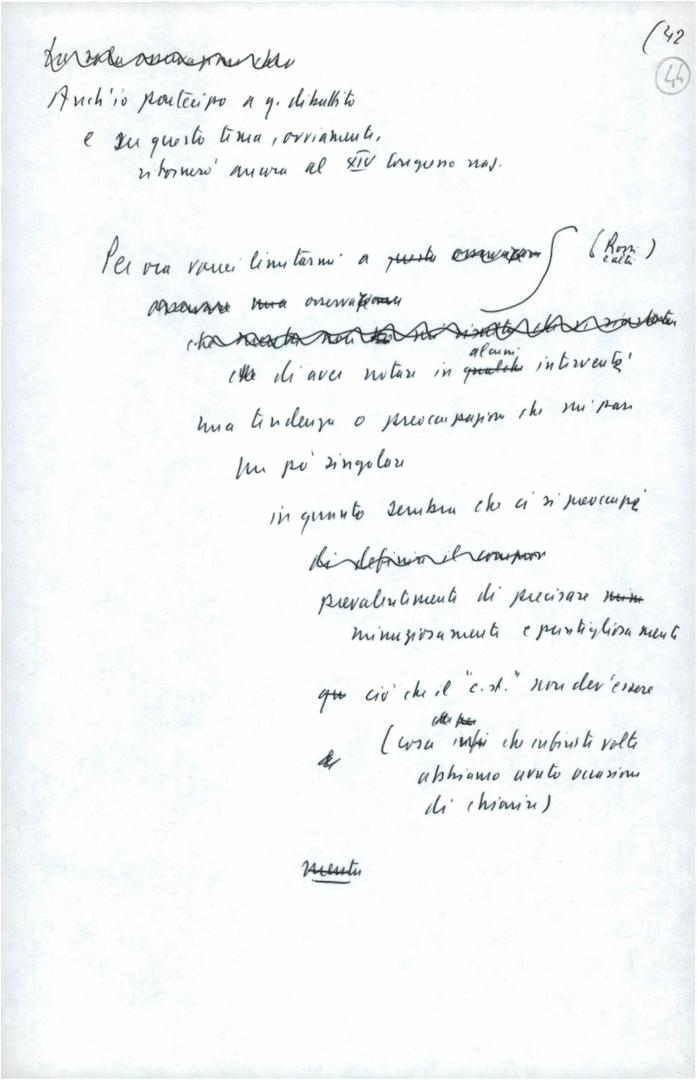 (42
44
Anch'io partecipo a q. dibattito
e su questo tema, ovviamente,
ritornerò ancora al XIV Congresso naz.
Per ora vorrei limitarmi a questo osservazione
(Rossi e altri)
osservare una osservazione
alcuni
che di aver notare in qualche interventi
una tendenza o preoccupazione che mi pare
un pò singolare
in quanto sembra che ci si preoccupi
di definire il
prevalentemente di precisare
minuziosamente e puntigliosamente
ciò che il "c.st." non dev'essere
(cosa che infinite volte
abbiamo avuto occasione
di chiarire)
mentre